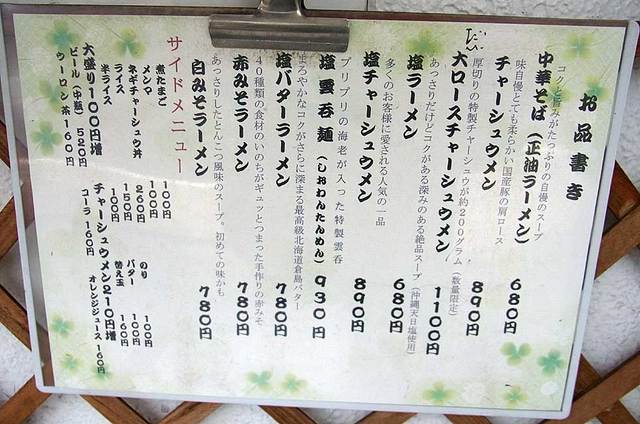 お品書き
コクと旨みがたっぷりの自慢のスープ
中華そば（正油ラーメン） 680円
味自慢とても柔らかい国産豚の肩ロース
チャーシュウメン 890円
厚切りの特製チャーシュウが約200グラム（数量限定）
大ロースチャーシュウメン 1100円
あっさりだけどコクがある深みのある絶品スープ（沖縄天日塩使用）
塩ラーメン 680円
多くのお客様に愛される人気の一品
塩チャーシュウメン 890円
プリプリの海老が入った特製雲呑
塩雲呑麺（しおわんたんめん） 930円
まろやかなコクがさらに深まる最高級北海道倉島バター
塩バターラーメン 780円
40種類の食材のいのちがギュッとつまった手作りの赤みそ
赤みそラーメン 780円
あっさりしたとんこつ風味のスープ。初めての味かも
白みそラーメン 780円
サイドメニュー
煮たまご 100円
メンマ 100円
ネギチャーシュウ丼 260円
ライス 150円
半ライス 100円
のり 100円
バター 100円
替え玉 160円
大盛り100円増 チャーシュウメン210円増
ビール（中瓶）520円 コーラ 160円 オレンジジュース 160円
ウーロン茶 160円